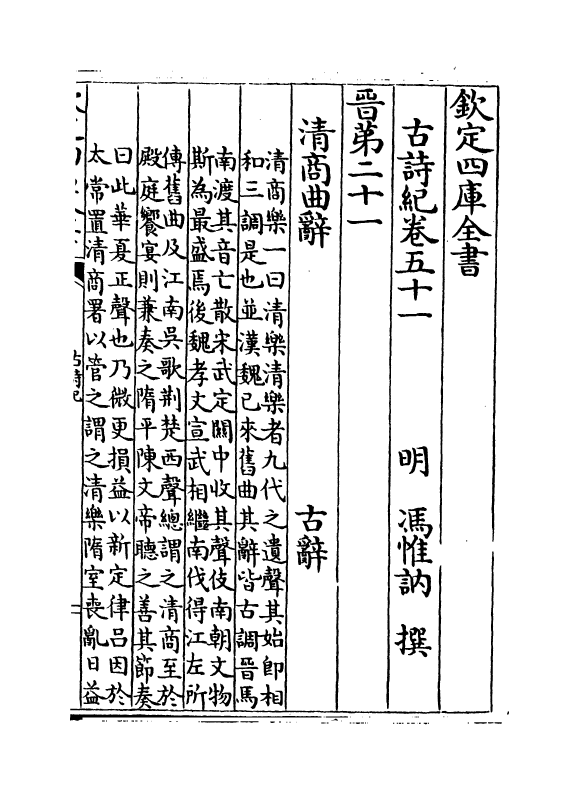 欽定四庫全書
古詩紀卷五十一　明　馮惟訥　撰
晉第二十一
清商曲辭　古辭
清商樂一曰清樂清樂者九代之遺聲其始即相
和三調是也並漢魏已來舊曲其辭皆古調晉馬
南渡其音亡散宋武定關中收其聲伎南朝文物
斯為最盛焉後魏孝文宣武相繼南伐得江左所
傳舊曲及江南吳歌荆楚西聲總謂之清商至於
殿庭饗宴則兼奏之隋平陳文帝聽之善其節奏
曰此華夏正聲也乃微更損益以新定律呂因於
太常置清商署以管之謂之清樂隋室喪亂日益
古詩紀